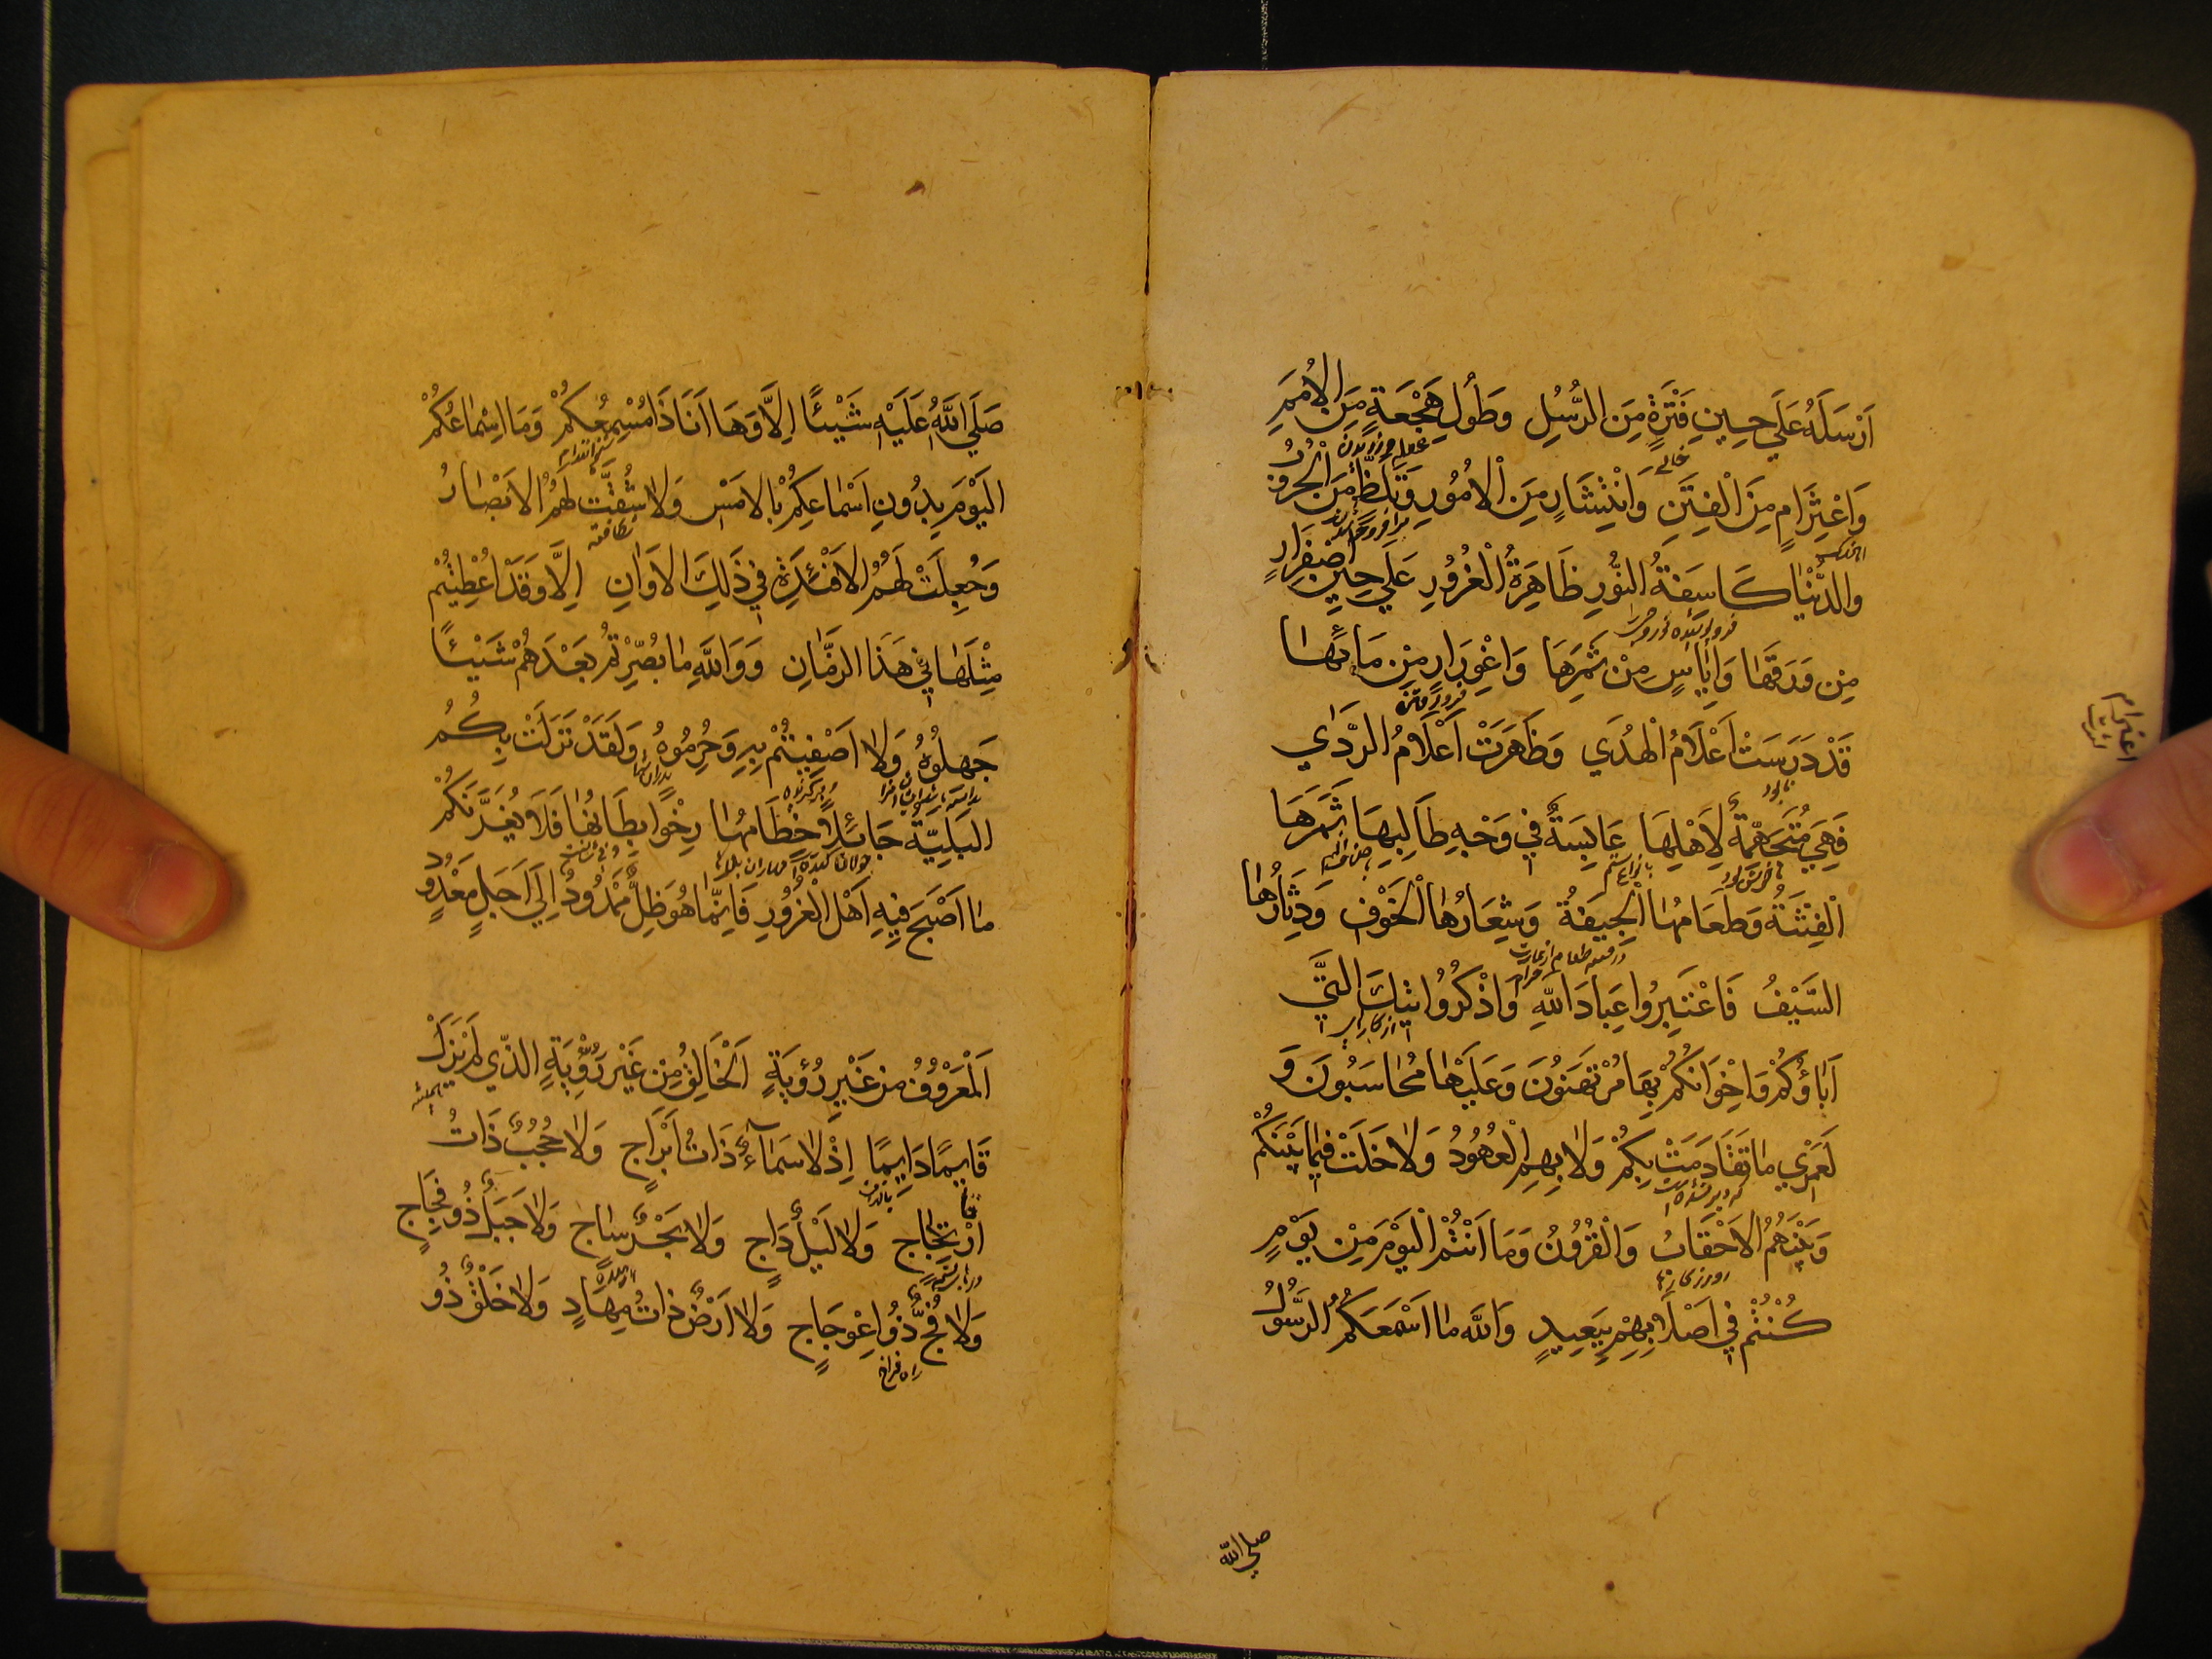 اَرْسَلَهُ عَلَي حِينِ فَتْرَةٍ مِنَ الرُّسُلِ وَطُولِ هَجْعَةٍ مِنَ الاُمَمِ
وَاعْتِرَامٍ مِنَ الْفِتَنِ وَانْتِشَارٍ مِنَ الْاُمُورِ وَتَلَظٍّ مِنَ الْحُرُوبِ
وَالدُّنْيَا كَاسِفَةُ النُّورِ ظَاهِرَةُ الْغُرُورِ عَلَي حِينِ اصْفِرَارٍ
مِن وَرَقِهَا وَاِيَاسٍ مِنْ ثَمَرِهَا وَاغْوِرَارٍ مِنْ مَائِهَا
قَدْ دَرَسَتْ اَعْلَامُ الْهُدَي وَظَهَرَتْ اَعْلَامُ الرَّدَي
فَهِيَ مُتَجَهِّمَةٌ لِاَهْلِهَا عَابِسَةٌ فِي وَجْهِ طَالِبِهَا ثَمَرُهَا
الْفِتْنَةُ وَطَعَامُهَا الْجِيفَةُ وَشِعَارُهَا الْخَوْفُ وَدِثَارُهَا
السَّيْفُ فَاعْتَبِرُوا عِبَادَ اللهِ وَاذْكُرُوا تِيكَ الَّتِي
اٰبَاؤُكُمْ وَاِخْوَانُكُمْ بِهَا مُرْتَهَنُونَ وَعَلَيْهَا مُحَاسَبُونَ وَ
لَعَمْرِي مَا تَقَادَمَتْ بِكُمْ وَلَا بِهِمُ الْعُهُودُ وَلَا خَلَتْ فِيمَا بَيْنَكُمْ
وَبَيْنَهُمُ الْاَحْقَابُ وَالْقُرُونُ وَمَا اَنْتُمُ الْيَوْمَ مِنْ يَوْمٍ
كُنْتُمْ فِي اَصْلَابِهِمْ بِبَعِيدٍ وَاللهِ مَا اَسْمَعَكُمُ الرَّسُولُ
صلي الله
اعترام
صَلَّي اللهُ عَلَيْهِ شَيْئًا اِلَّا وَهَا اَنَا ذَا مُسْمِعُكُمْ وَمَا اِسْمَاعُكُمْ
الْيَوْمَ بِدُونِ اَسْمَاعِكُمْ بِالْاَمْسِ وَلَا شُقَّتْ لَهُمُ الْاَبْصَارُ
وَجُعِلَتْ لَهُمُ الْاَفْئِدَةُ فِي ذَلِكَ الْاَوَانِ اِلَّا وَقَدْ اُعْطِيتُمْ
مِثْلَهَا فِي هَذَا الزَّمَانِ وَوَاللهِ مَا بُصِّرْتُمْ بَعْدَهُمْ شَيْئًا
جَهِلُوهُ وَلَا اُصْفِيتُمْ بِهِ وَحُرِمُوهُ وَلَقَدْ نَزَلَتْ بِكُمُ
الْبَلِيَّةُ جَائِلًا خِطَامُهَا رِخْوًا بِطَانُهَا فَلَا يَغُرَّنَّكُمْ
مَا اَصْبَحَ فِيهِ اَهْلُ الْغُرُورِ فَاِنَّمَا هُوَ ظِلٌّ مَمْدُودٌ اِلَي اَجَلٍ مَعْدُودٍ
اَلْمَعْرُوفُ مِنْ غَيْرِ رُؤيَةٍ اَلْخَالِقُ مِنْ غَيْرِ رَوِيَّةٍ الَّذِي لَمْ يَزَلْ
قَايِمًا دَايِمًا اِذْ لَا سَمَآءٌ ذَاتُ اَبْرَاجٍ وَلَا حُجُبٌ ذَاتُ
اِرْتِجَاجٍ وَلَا لَيْلٌ دَاجٍ وَلَا بَحْرٌ سَاجٍ وَلَا جَبَلٌ ذُو فِجَاجٍ
وَلَا فَجٌّ ذُو اعْوِجَاجٍ وَلَا اَرْضٌ ذَاتُ مِهَادٍ وَلَا خَلْقٌ ذُو
راه فراخ